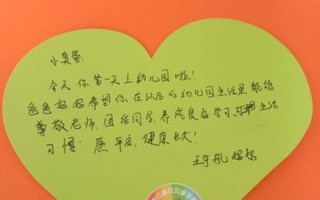 小宝蛋:
今天你第一天上幼儿园啦!
爸爸妈妈希望你在以后的幼儿园生活里能够
尊敬老师,团结同学,养成良好学习和生活
习惯!愿平安、健康长大!
妈妈